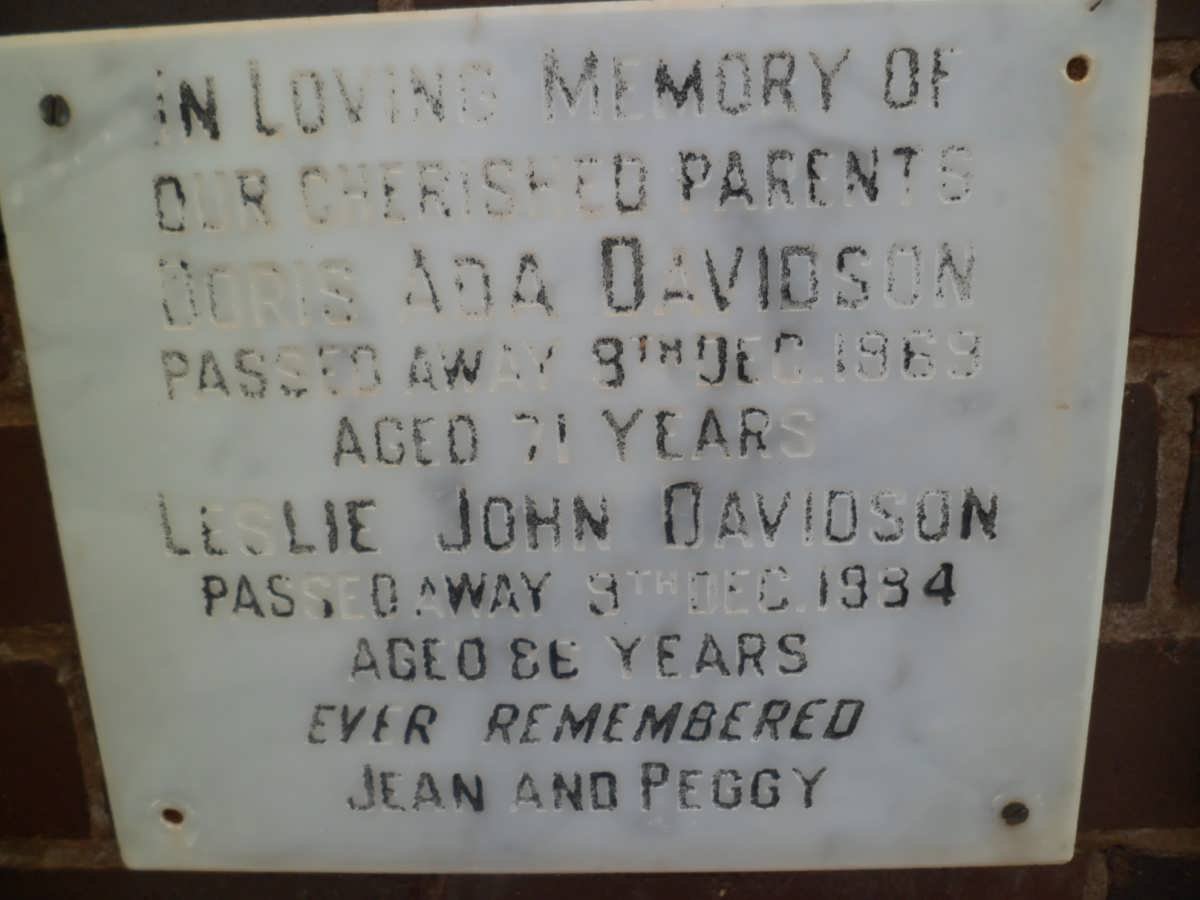 IN LOVING MEMORY OF
OUR CHERISHED PARENTS
DORIS ADA DAVIDSON
PASSED AWAY 9TH DEC. 1969
AGED 71 YEARS
LESLIE JOHN DAVIDSON
PASSED AWAY 9TH DEC. 1984
AGED 86 YEARS
EVER REMEMBERED
JEAN AND PEGGY